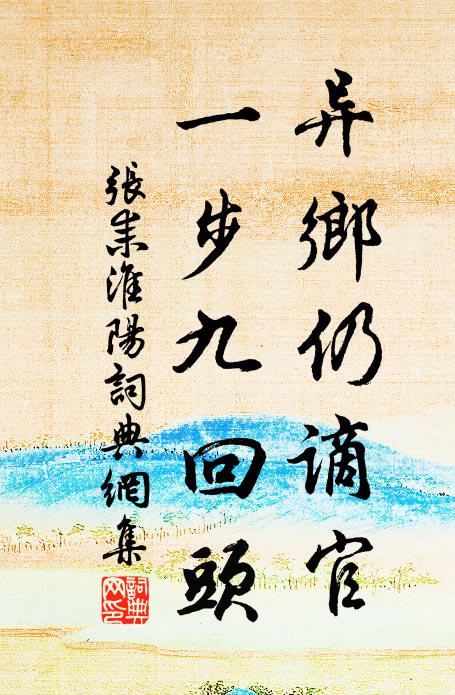 异鄉仍谪官
一步九回頭
張耒淮陽詞典網集
詞典